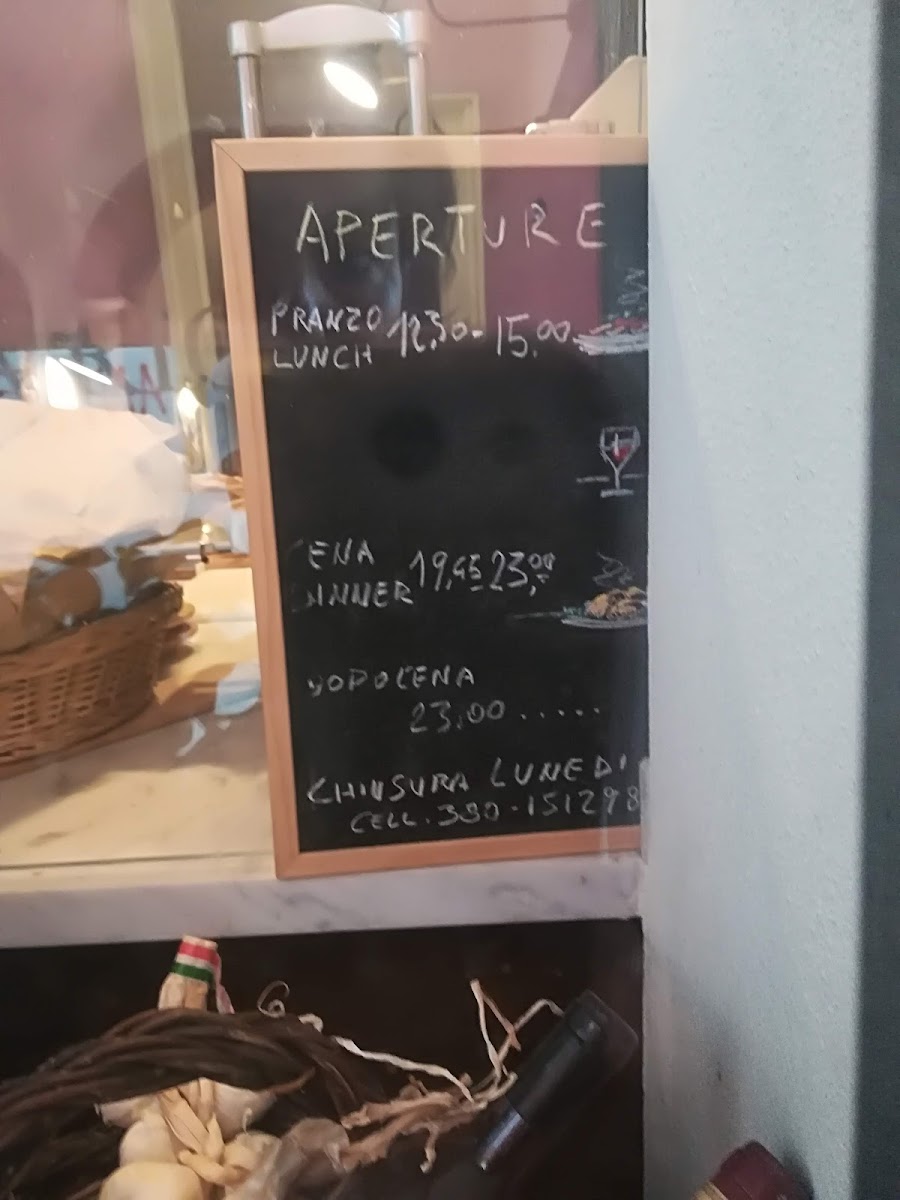 APERTURE
PRANZO 12,30-15.00
LUNCH
CENA 19,45 23,00
DINNER
DOPOCENA
23.00.....
CHIUSURA LUNEDI'
CELL. 380-151298